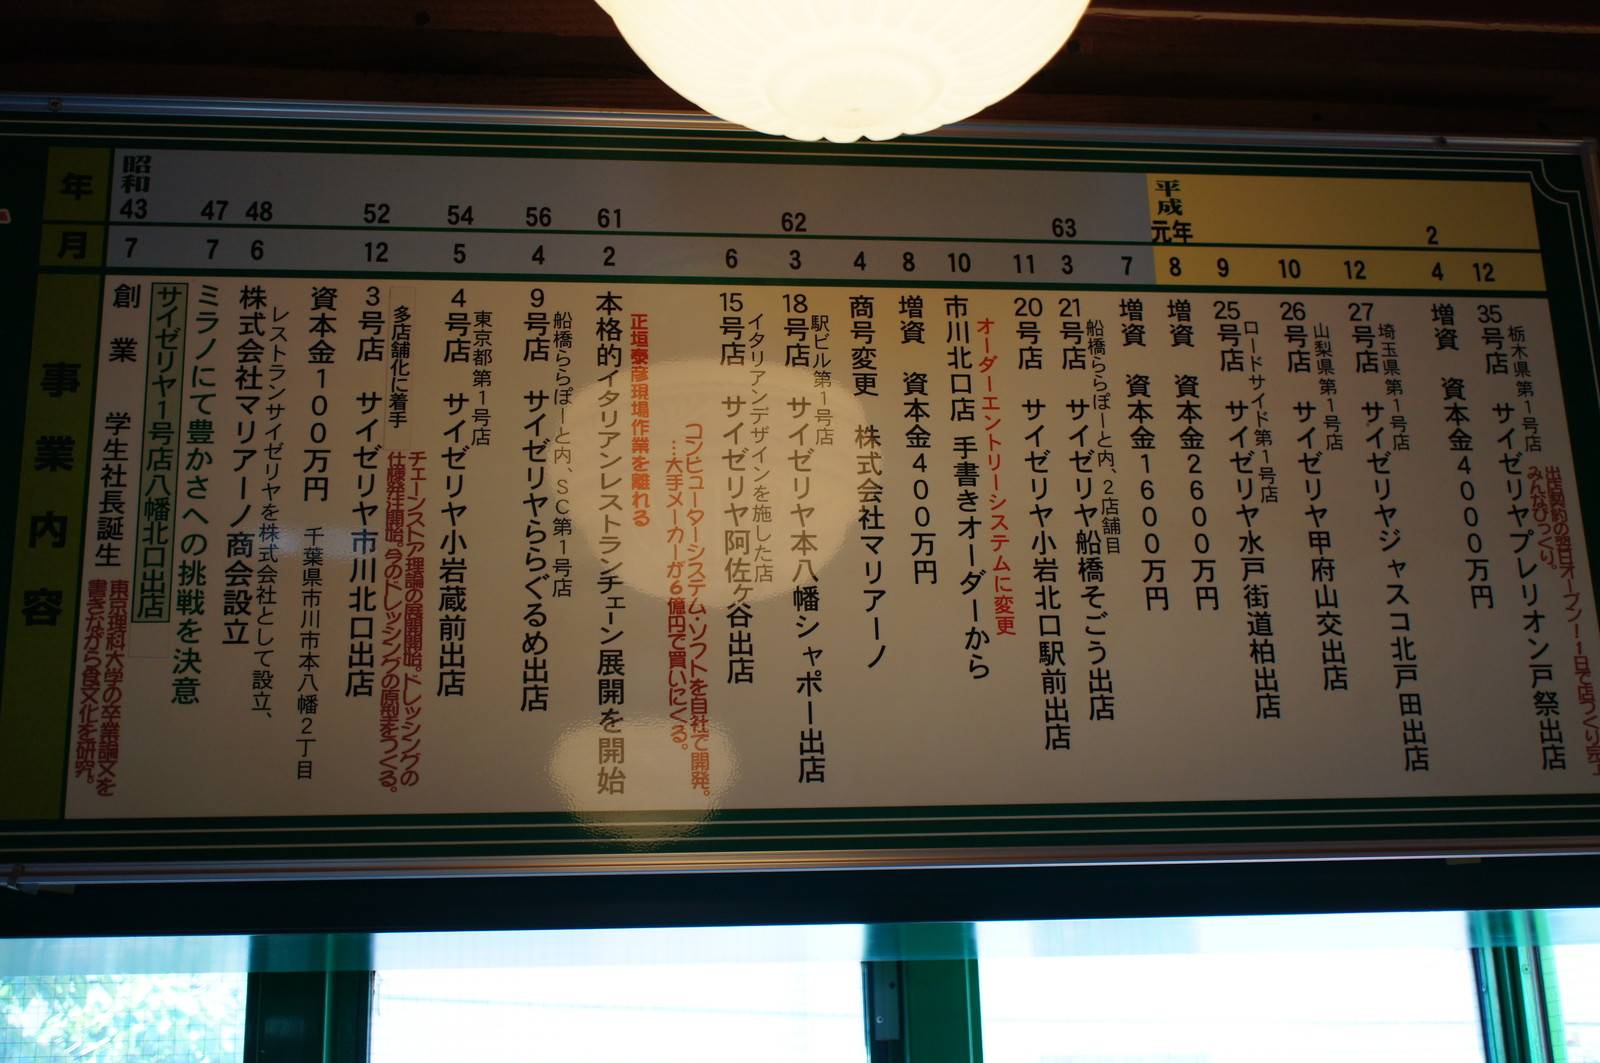 年
月
事業内容
昭和
43
7
創業　学生社長誕生
東京理科大学の卒業論文を
書きながら食文化を研究。
サイゼリヤ1号店八幡北口出店
47
7
ミラノにて豊かさへの挑戦を決意
48
6
レストランサイゼリヤを株式会社として設立、
株式会社マリアーノ商会設立
資本金100万円　千葉県市川市本八幡2丁目
52
12
多店舗化に着手
3号店　サイゼリヤ市川北口出店
チェーンストア理論の展開開始。ドレッシングの
仕様発注開始。今のドレッシングの原型をつくる。
54
5
東京都第1号店
4号店　サイゼリヤ小岩蔵前出店
56
4
船橋ららぽーと内、SC第1号店
9号店　サイゼリヤららぐるめ出店
61
2
正垣泰彦現場作業を離れる
本格的イタリアンレストランチェーン展開を開始
コンピューターシステム・ソフトを自社で開発。
…大手メーカーが6億円で買いにくる。
6
イタリアンデザインを施した店
15号店　サイゼリヤ阿佐ヶ谷出店
62
3
駅ビル第1号店
18号店　サイゼリヤ本八幡シャポー出店
4
商号変更　株式会社マリアーノ
8
増資　資本金400万円
10
オーダーエントリーシステムに変更
市川北口店　手書きオーダーから
11
20号店　サイゼリヤ小岩北口駅前出店
63
3
船橋ららぽーと内、2店舗目
21号店　サイゼリヤ船橋そごう出店
7
増資　資本金1600万円
平成
元年
8
増資　資本金2600万円
9
ロードサイド第1号店
25号店　サイゼリヤ水戸街道柏出店
10
山梨県第1号店
26号店　サイゼリヤ甲府山交出店
12
埼玉県第1号店
27号店　サイゼリヤジャスコ北戸田出店
2
4
増資　資本金4000万円
12
栃木県第1号店
35号店　サイゼリヤプレリオン戸祭出店
出店契約の翌日オープン！1日で店づくり完了
みんなびっくり。